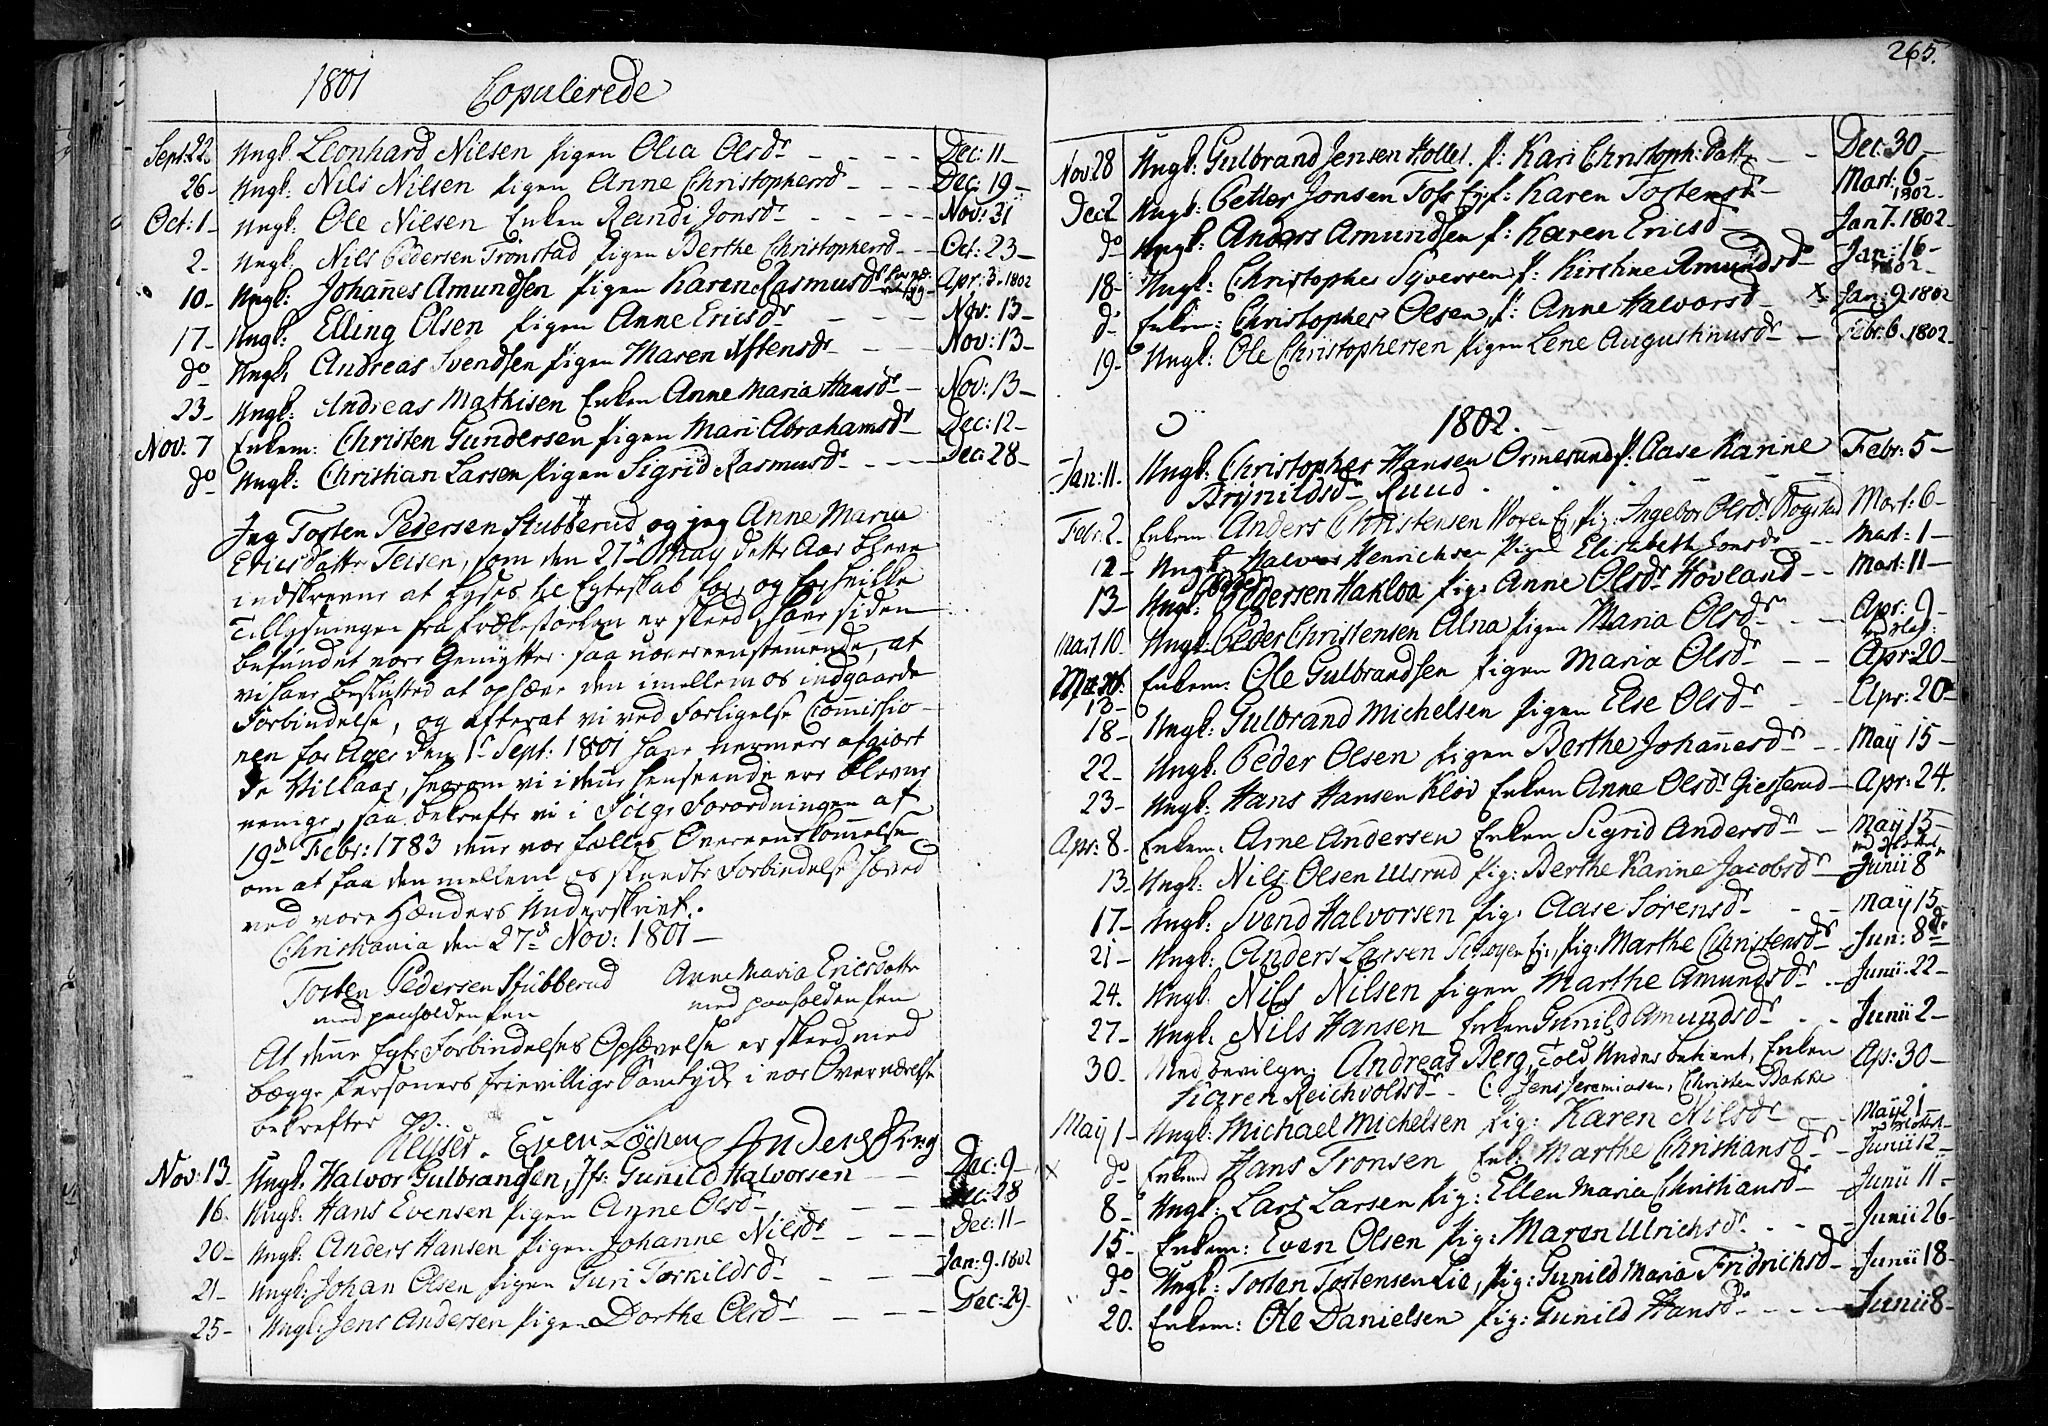 1801 Copulerede
Sept: 22. Ungk: Leonhard Nielsen Pigen Olia Olsdr - - - - Dec: 11 -
26 - Ungk: Nils Nilsen Pigen Anne Christophersd - - - Dec: 19 -
Oct: 1 - Ungk: Ole Nilsen Enken Randi Jonsdr - - - - Nov: 21
2 - Ungk: Nils Pedersen Trönstad Pigen Berthe Christophersd - - Oct: 23 -
10 - Ungk: Johañes Amundsen Pigen Karen Rasmusdr Apr: 3. 1802
17 - Ungk: Elling Olsen Pigen Anne Ericsdr - - - Nov: 13 -
do Ungk: Andreas Svendsen Pigen Maren Aftensdr - - Nov: 13 -
23 - Ungk: Andreas Mathisen Enken Anne Maria Hansdr - Nov: 13 -
Nov: 7 Enkem: Christen Gundersen Pigen Mari Abrahamsdr Dec: 12 -
do Ungk: Christian Larsen Pigen Sigriid Rasmusdr - - - Dec: 28 -
Jeg Torsten Pedersen Stubberud og jeg Anne Maria
Ericsdatter Teisen, som den 27de May dette Aar bleve
indskrevne at lyses til Egteskab for, og for hvilke
Tillysningen fra Prækestoelen er skeed, have siden
befundet vore Gemytter saa uovereenstemmende, at
vi have besluttet at ophæve den imellem os indgaaede
Forbindelse, og efterat vi ved Forligelses Com̃issio-
nen for Ager den 1te Sept: 1801 have nermere afgiort
de Vilkaar, hvorom vi i denne henseende ere blevne
eenige, saa bekrefte vi i Følge Forordningen af
19de Febr: 1783 denne vor fælles Overeenskom̃else
om at faa den mellem os skeedte Forbindelse hæved
ved vore Hænders Underskrivt.
Christiania den 27de Nov: 1801 -
Torsten Pedersen Stubberud Anne Maria Ericsdatter
med paaholden Pen med paaholden Pen
At denne Egte Forbindelses Ophævelse er skeed med
begge Personers frievillige Samtykke i vor Overværelse
bekrefter
Keyser. Even Løchen Anders
Nov: 13 - Ungk. Halvor Gulbrandsen, Jfr: Gunild Halvorsen - - Dec: 9 -
16. Ungk: Hans Evensen Pigen Anne Olsdr - - - Dec: 28
20 - Ungk: Anders Hansen Pigen Johanne Nilsdr - - - Dec: 11 -
21 - Ungk: Johan Olsen Pigen Guri Torkildsdr - - - Jan: 9. 1802
25 - Ungk: Jens Andersen Pigen Dorthe Olsdr - - - Dec: 29 -
265.
Nov: 28 Ungk: Gulbrand Jensen Holles. P: Kari Christoph: Datt - - Dec: 30 -
Dec 2 Ungk: Petter Jonsen Toss Eg: P: Karen Torstensdr Mart: 6 - 1802 -
do Ungk: Anders Amundsen P: Karen Ericsd - Jan 7. 1802 -
18 - Ungk: Christopher Syversen P: Kirstine Amundsd Jan: 16 - 1802 -
do Enkem: Christopher Olsen, P: Anne Halvorsd - x Jan: 9 1802
19 - Ungk: Ole Christophersen Pigen Lene Augustinusdr - Febr: 6. 1802 -
1802. -
Jan: 11. Ungk: Christopher Hansen Ormesund P: Aase Karine Febr: 5 -
Brynildsdr Ruud.
Febr: 2. Enkem Anders Christensen Woxen Eg, Pig: Ingebor Olsdr Rogstad Mart: 6 -
12 - Ungk: Halvor Henrichsen Pigen Elisabeth Jonsdr - - Mart: 1 -
13 - Ungk: Peder Pedersen Hakloa Pig: Anne Olsdr Hovland - - Mart: 11 -
Mart 10. Ungk: Peder Christensen Alna Pigen Maria Olsdr - - Apr: 9 -
13 - Enkem: Ole Gulbrandsen Pigen Maria Olsdr - - Apr: 20 -
18 - Ungk: Gulbrand Michelsen Pigen Else Olsdr - - Apr: 20 -
22 - Ungk: Peder Olsen Pigen Berthe Johañesdr - - May 15 -
23 - Ungk: Hans Hansen Kløv Enken Anne Olsdr Giesserud - Apr: 24.
Apr: 8 - Enkem: Arne Andersen Enken Sigrid Andersdr - May 15 -
13 - Ungk: Nils Olsen Ulsrud Pig: Berthe Karine Jacobsdr - Junii 8
17 - Ungk: Svend Halvorsen Pig: Aase Sørensdr - - May 15 -
21 - Ungk: Anders Larsen Schøyen Eg:, Pig: Marthe Christensdr Jun: 8de
24. Ungk: Nils Nilsen Pigen Marthe Amundsdr - - Junii: 22 -
27 - Ungk: Nils Hansen Enken Gunild Amundsdr - - Junii 2 -
30. Med bevilgn: Andreas Berg, Told Under betient, Enken Ap: 30 -
Karen Reichvoldsdr - C: Jens Jeremiasen, Christen Bakke
May 1 - Ungk: Michael Michelsen Pig: Karen Nilsdr May 21 -
x do Enkem Hans Tronsen Enk: Marthe Christiansdr - Junii 12 -
8 - Ungk: Lars Larsen Pig: Ellen Maria Christiansdr - Junii 11 -
15 - Enkem: Even Olsen Pig: Maren Ulrichsdr - - - Junii 26 -
do Ungk: Torsten Torstensen Lie, Pig: Gunild Maria Fridrichsdr - Junii 18 -
20. Enkem: Ole Danielsen Pig: Gunild Hansdr - - - Junii 8 -